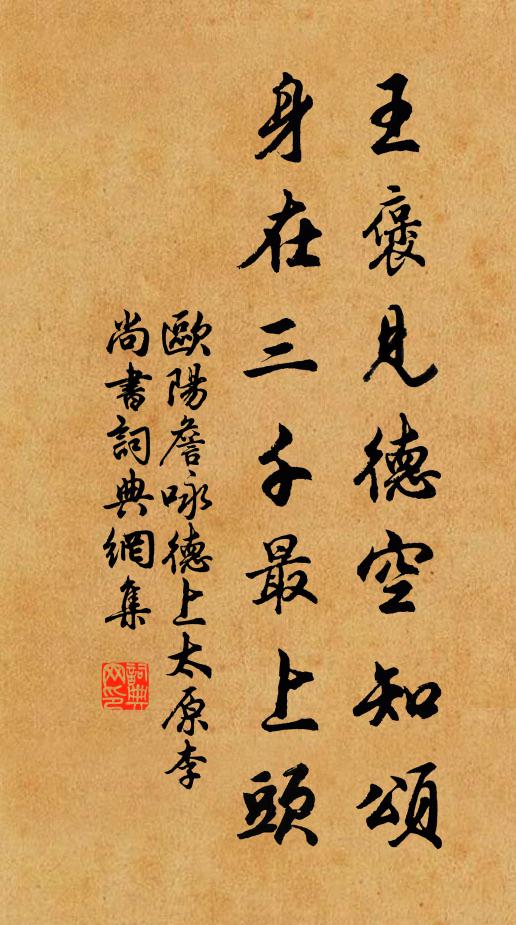 王褒見德空知頌
身在三千最上頭
歐陽詹咏德上太原李
尚書詞典網集
詞典网印